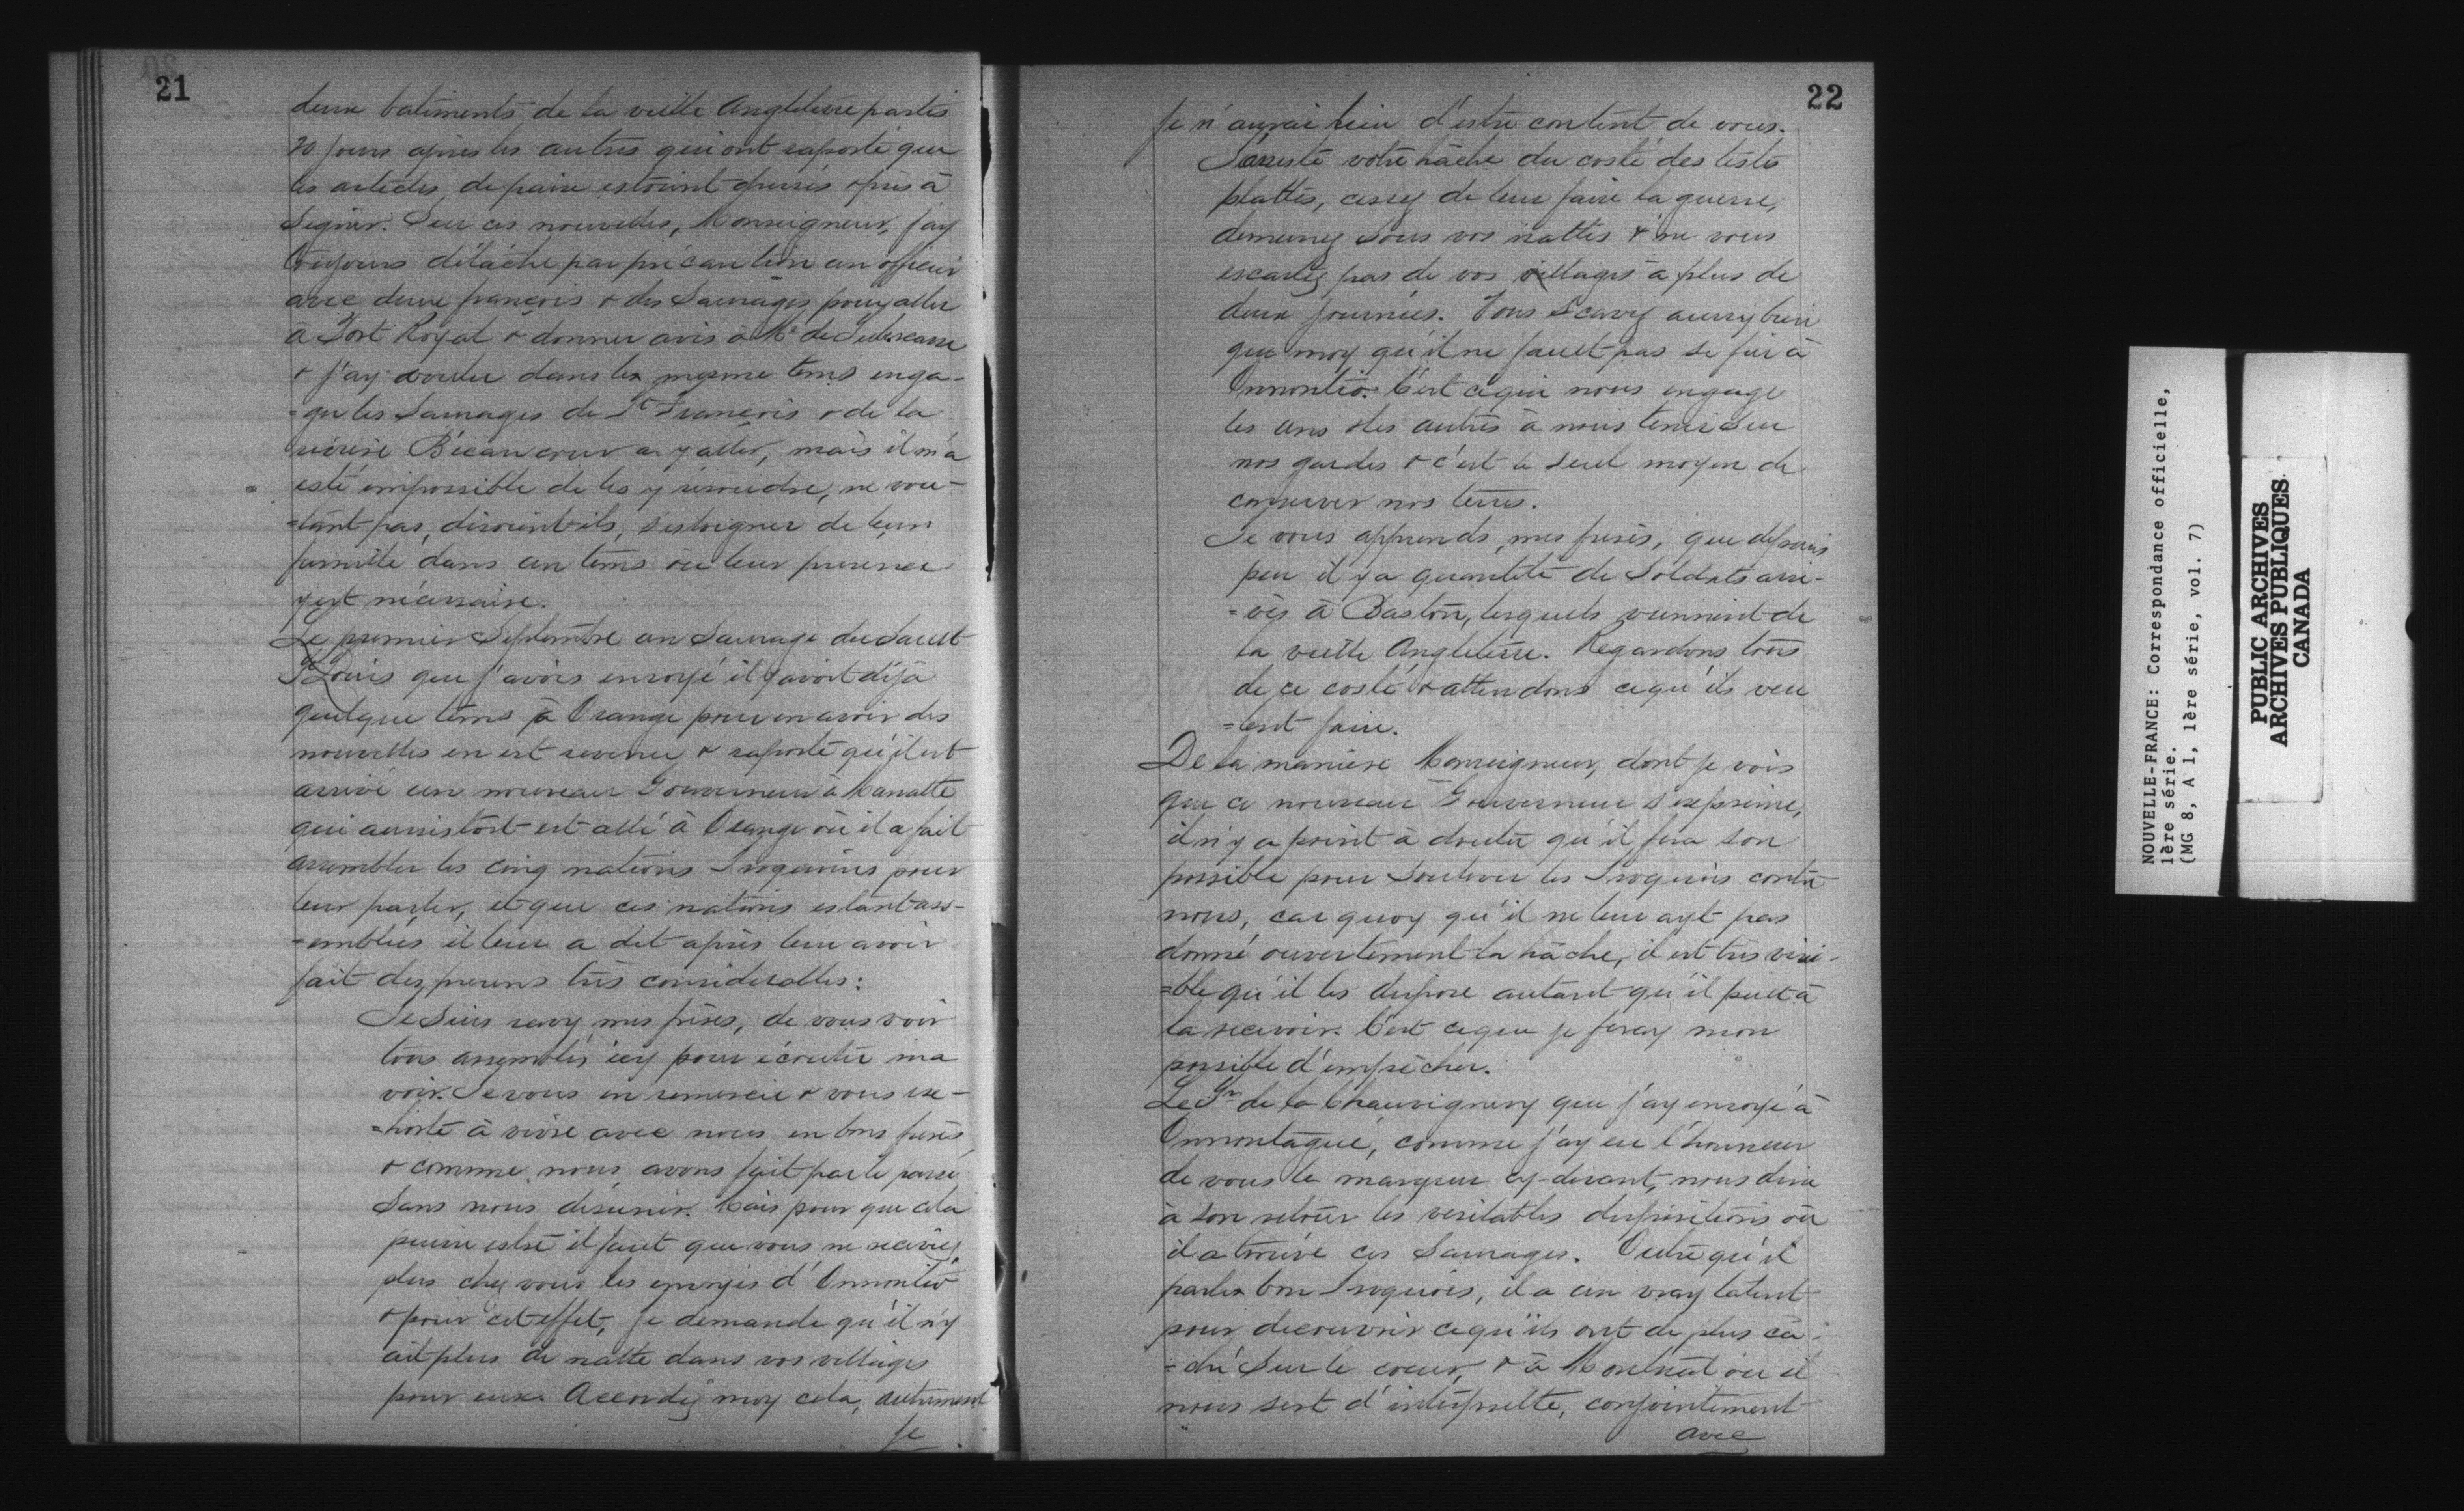 21
deux batiments de la vieille Angleterre partis
20 jours apres les autres qui ont raporté que
les articles de paix estoient dressés & prés à
Signer. Sur ces nouvelles, Monseigneur, j'ay
toujours détaché par précaution un officier
avec deux françois & des Sauvages pour aller
à Port Royal & donner avis à Mr de Subercasse
& j'ay voulu dans le mesme tems enga-
=ger les Sauvages de St François & de la
riviere Bécancour a y aller, mais il m'a
esté impossible de les y résoudre, ne vou-
=lant pas, disoient-ils, s'esloigner de leur
famille dans un tems où leur presence
y est nécessaire.
Le premier Septembre un Sauvage du Sault
St Louis que j'avois envoyé il y avoit déjà
quelque tems à Orange pour en avoir des
nouvelles en est revenu & raporte qu'il est
arrivé un nouveau Gouverneur à Manatte
qui aussistost est allé à Orange où il a fait
assembler les cinq nations Iroquoises pour
leur parler, et que ces nations estant ass-
=emblées il leur a dit après leur avoir
fait des presens très considerables:
Je Suis ravy mes frères, de vous voir
tous assemblés icy pour écouter ma
voix. Je vous en remercie & vous ex-
=horte à vivre avec nous en bons freres
& comme nous avons fait par le passé
Sans nous désunir. Mais pour que cela
puisse estre il faut que vous ne receviez
plus chez vous les envoyés d'Onnontio
& pour cet effet, je demande qu'il n'y
ait plus de natte dans vos villages
pour eux. Accordez moy cela, autrement
je
22
je n'aurai lieu d'estre content de vous.
J'arreste votre hâche du costé des testes
plattes, cessez de leur faire la guerre,
demeurez Sous vos nattes & ne vous
escartez pas de vos villages à plus de
deux journées. Vous Scavez aussy bien
que moy qu'il ne fault pas se fier à
Onnontio. C'est ce qui nous engage
les uns & les autres à nous tenir Sur
nos gardes & c'est le seul moyen de
conserver nos terres.
Je vous apprends, mes freres, que depuis
peu il y a quantité de Soldats arri-
=vés à Baston, lesquels viennent de
la vieille Angleterre. Regardons tous
de ce costé & attendons ce qu'ils veu
=lent faire.
De la manière Monseigneur, dont je vois
que ce nouveau Gouverneur s'exprime,
il n'y a point à douter qu'il fera son
possible pour Soulever les Iroquois contre
nous, car quoy qu'il ne leur ayt pas
donné ouvertement la hâche, il est très visi-
=ble qu'il les dispose autant qu'il peut à
la recevoir. C'est ce que je feray mon
possible d'empêcher.
Le Sr de la Chauvignery que j'ay envoyé à
Onnontagué, comme j'ay eu l'honneur
de vous le marquer cy-devant, nous dira
à son retour les veritables dispositions où
il a trouvé ces Sauvages. Outre qu'il
parle bon Iroquois, il a un vray talent
pour découvrir ce qu'ils ont de plus ca-
=ché Sur le coeur, & à Montreal où il
nous sert d'interprette, conjointement
avec
NOUVELLE-FRANCE: Correspondance officielle,
1ère série.
(MG 8, A 1, 1ère série, vol. 7)
PUBLIC ARCHIVES
ARCHIVES PUBLIQUES
CANADA